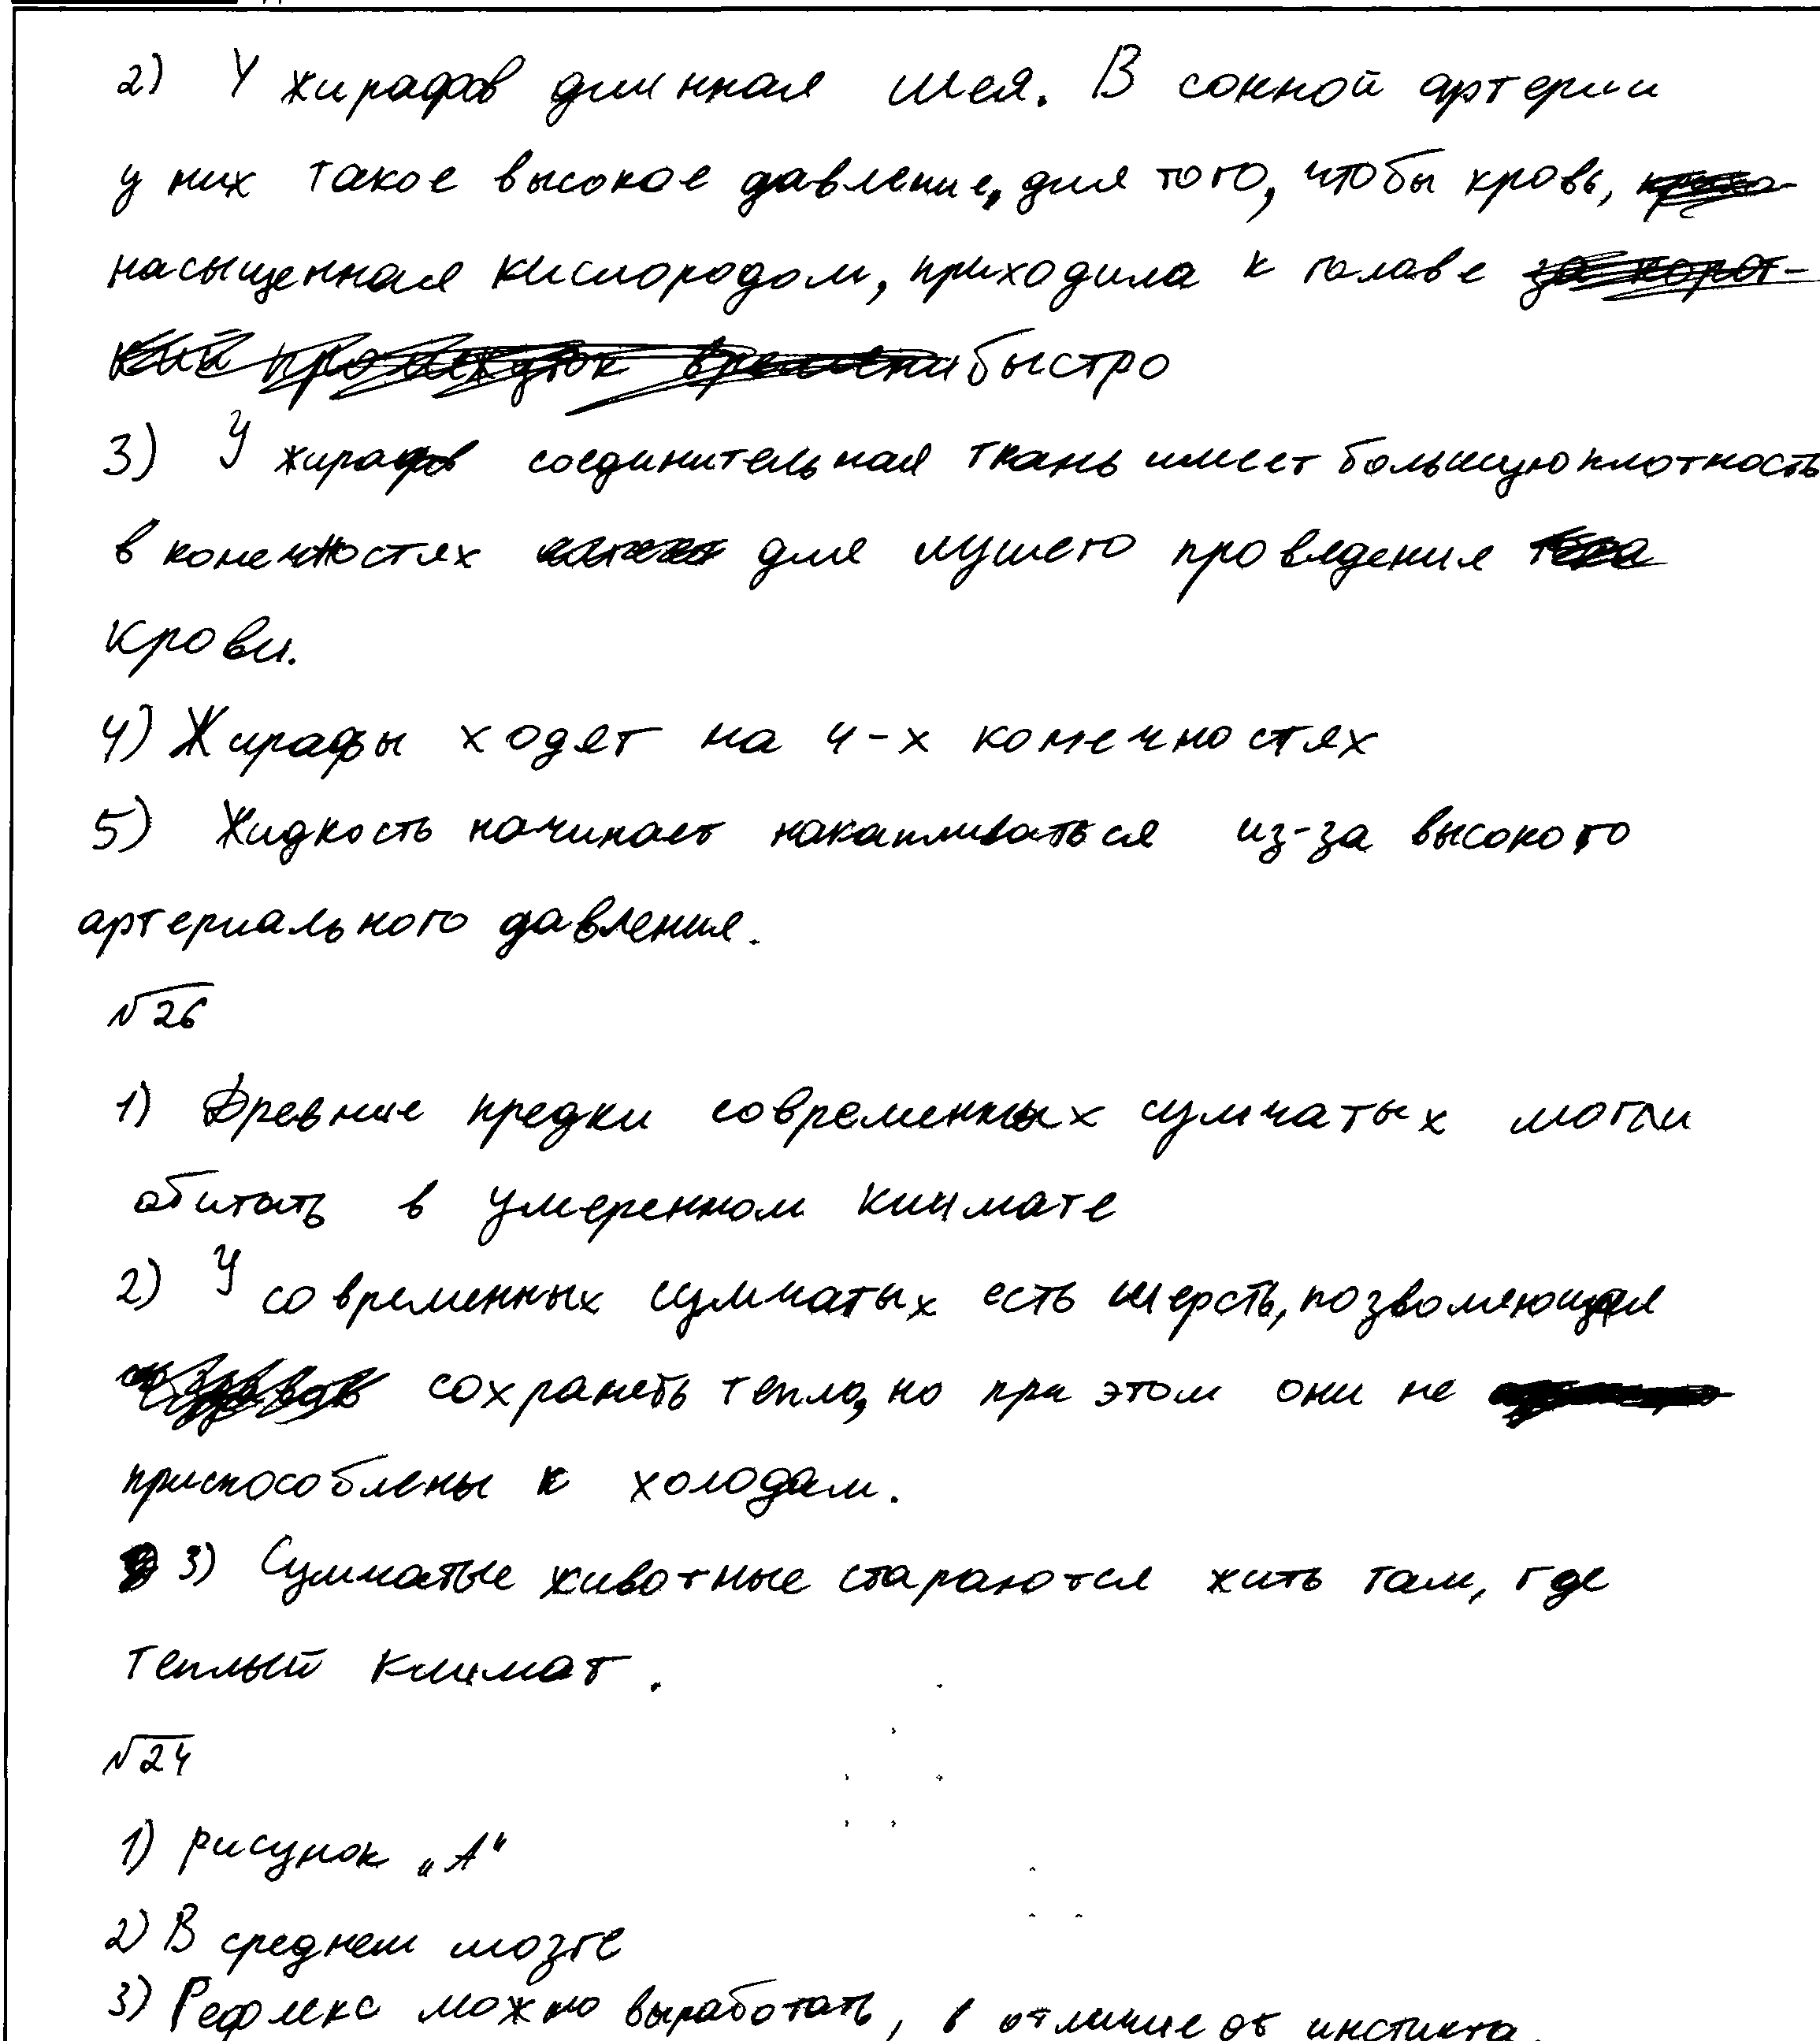 2) У жирафов длинная шея. В сонной артерии
у них такое высокое давление, для того, чтобы кровь,
насыщенная кислородом, приходила к голаве за корот-
кий промежуток времени быстро
3) У жирафов соединительная ткань имеет большую плотность
в конечностях имеет для лушего проведения
крови.
4) Жирафы ходят на 4-х конечностях
5) Жидкость начинает накапливаться из-за высокого
артериального давления.
№26
1) Древние предки современных сумчатых могли
обитать в умеренном климате
2) У современных сумчатых есть шерсть, позволяющая
сохранять тепло, но при этом они не
приспособлены к холодам.
3) Сумчатые животные стараются жить там, где
теплый климат.
№24
1) рисунок „А"
2) В среднем мозге
3) Рефлекс можно выработать, в отличие от инстикта.